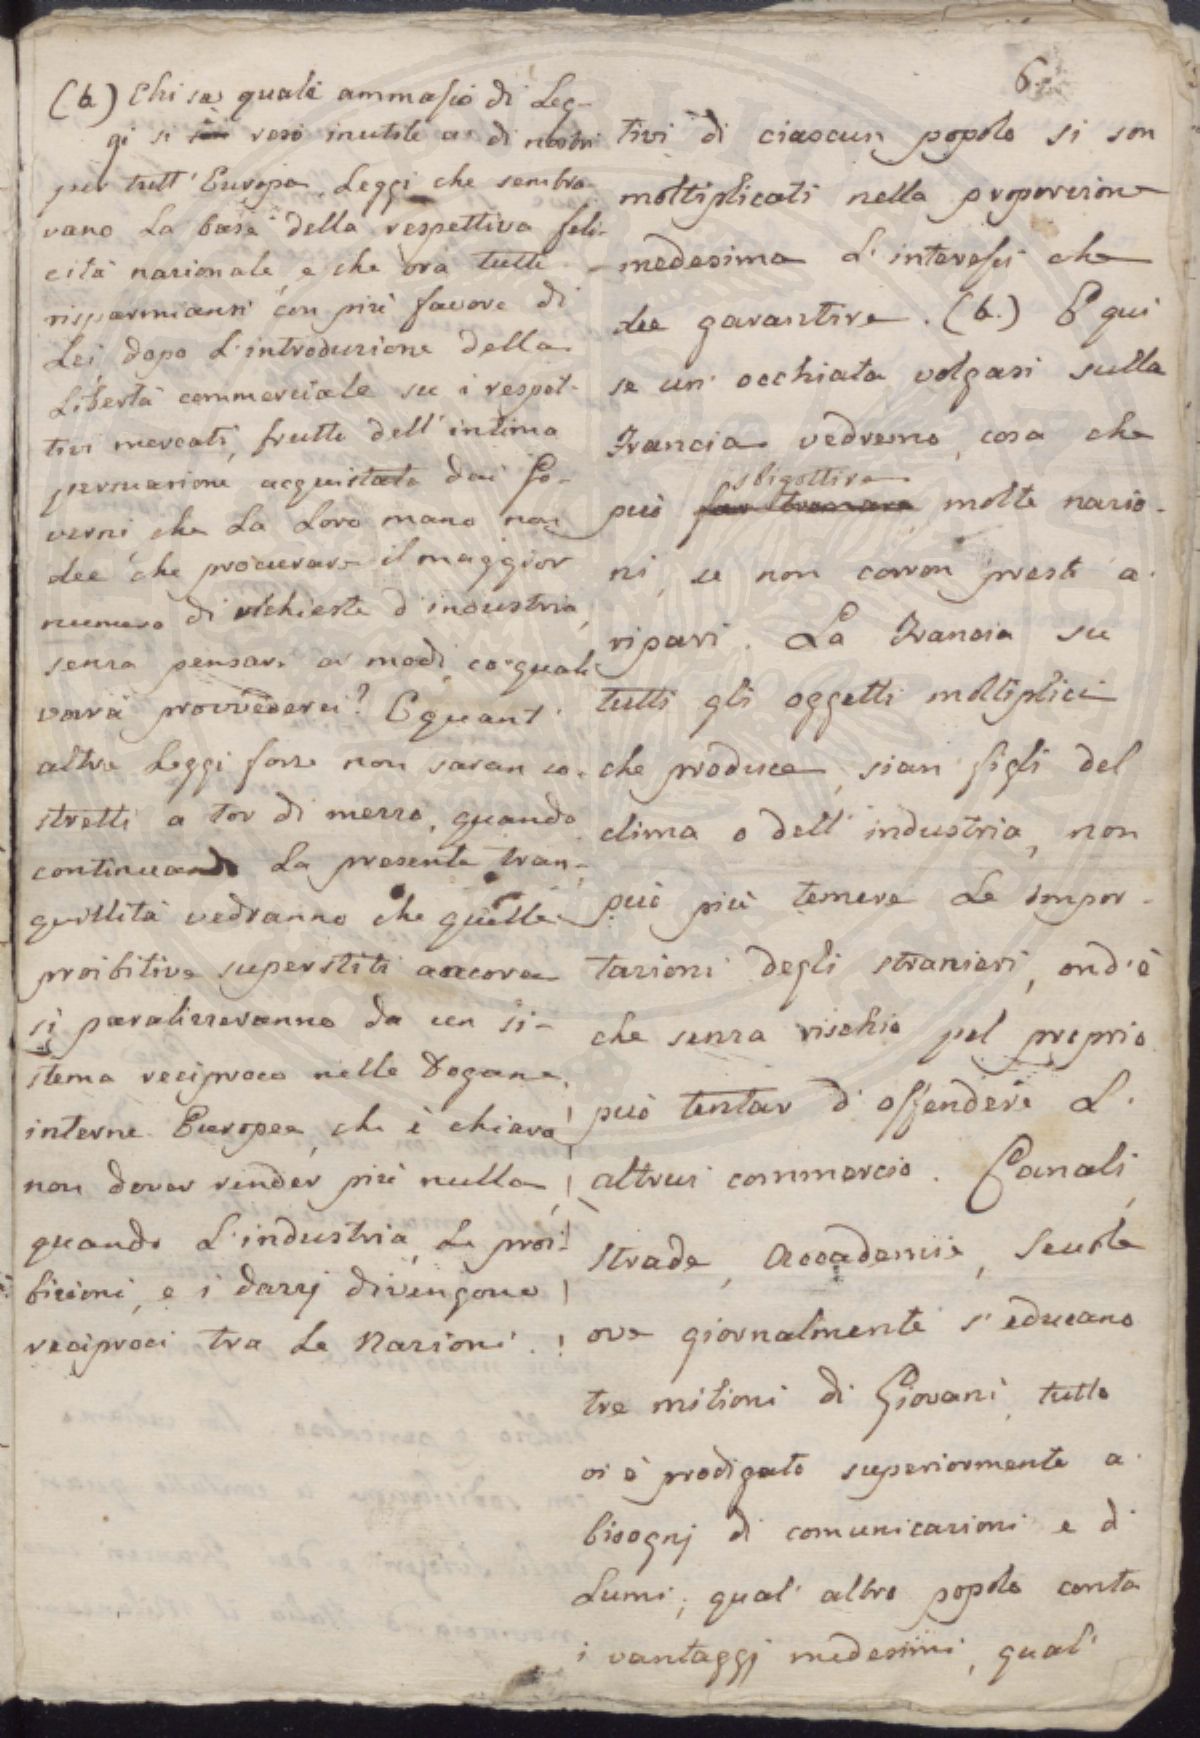 (b.) Chi sa quale ammasso di Leg-
gi si è reso inutile a' dì nostri
per tutt'Europa, Leggi che sembra-
vano La base della respettiva feli-
cità nazionale, e che ora tutti
risparmiansi con più favore di
Lei dopo L'introduzione della
Libertà commerciale su i respet-
tivi mercati, frutto dell'intima
persuasione acquistata dai Go-
verni che La Loro mano non
dee che procurare il maggior
numero di richieste d'industria,
senza pensare a' modi co' quali
vorrà provvederci? E quant'
altre Leggi forse non saran co-
stretti a tor di mezzo, quando
continuando La presente tran-
quillità vedranno che quelle
proibitive superstiti ancora
si paralizzeranno da un si-
stema reciproco nelle Dogane
interne Europee, che è chiaro
non dover render più nulla,
quando L'industria, Le proi-
bizioni, e i dazzj divengono
reciproci tra Le Nazioni.
6.
tivi di ciascun popolo si son
moltiplicati nella proporzione
medesima d'interessi che
dee garantire. (b.) E qui
se un'occhiata volgasi sulla
Francia vedremo, cosa che
sbigottire
può far tremare molte nazio-
ni, se non corron presti a'
ripari. La Francia su
tutti gli oggetti moltiplici
che produce, sian figli del
clima o dell'industria, non
può più temere Le impor-
tazioni degli stranieri, ond'è
che senza rischio pel proprio
può tentar d'offendere L'
altrui commercio. Canali,
strade, Accademie, Scuole
ove giornalmente s'educano
tre milioni di Giovani, tutto
vi è prodigato superiormente a'
bisognj di comunicazioni e di
Lumi; qual'altro popolo conta
i vantaggj medesimi, qual'